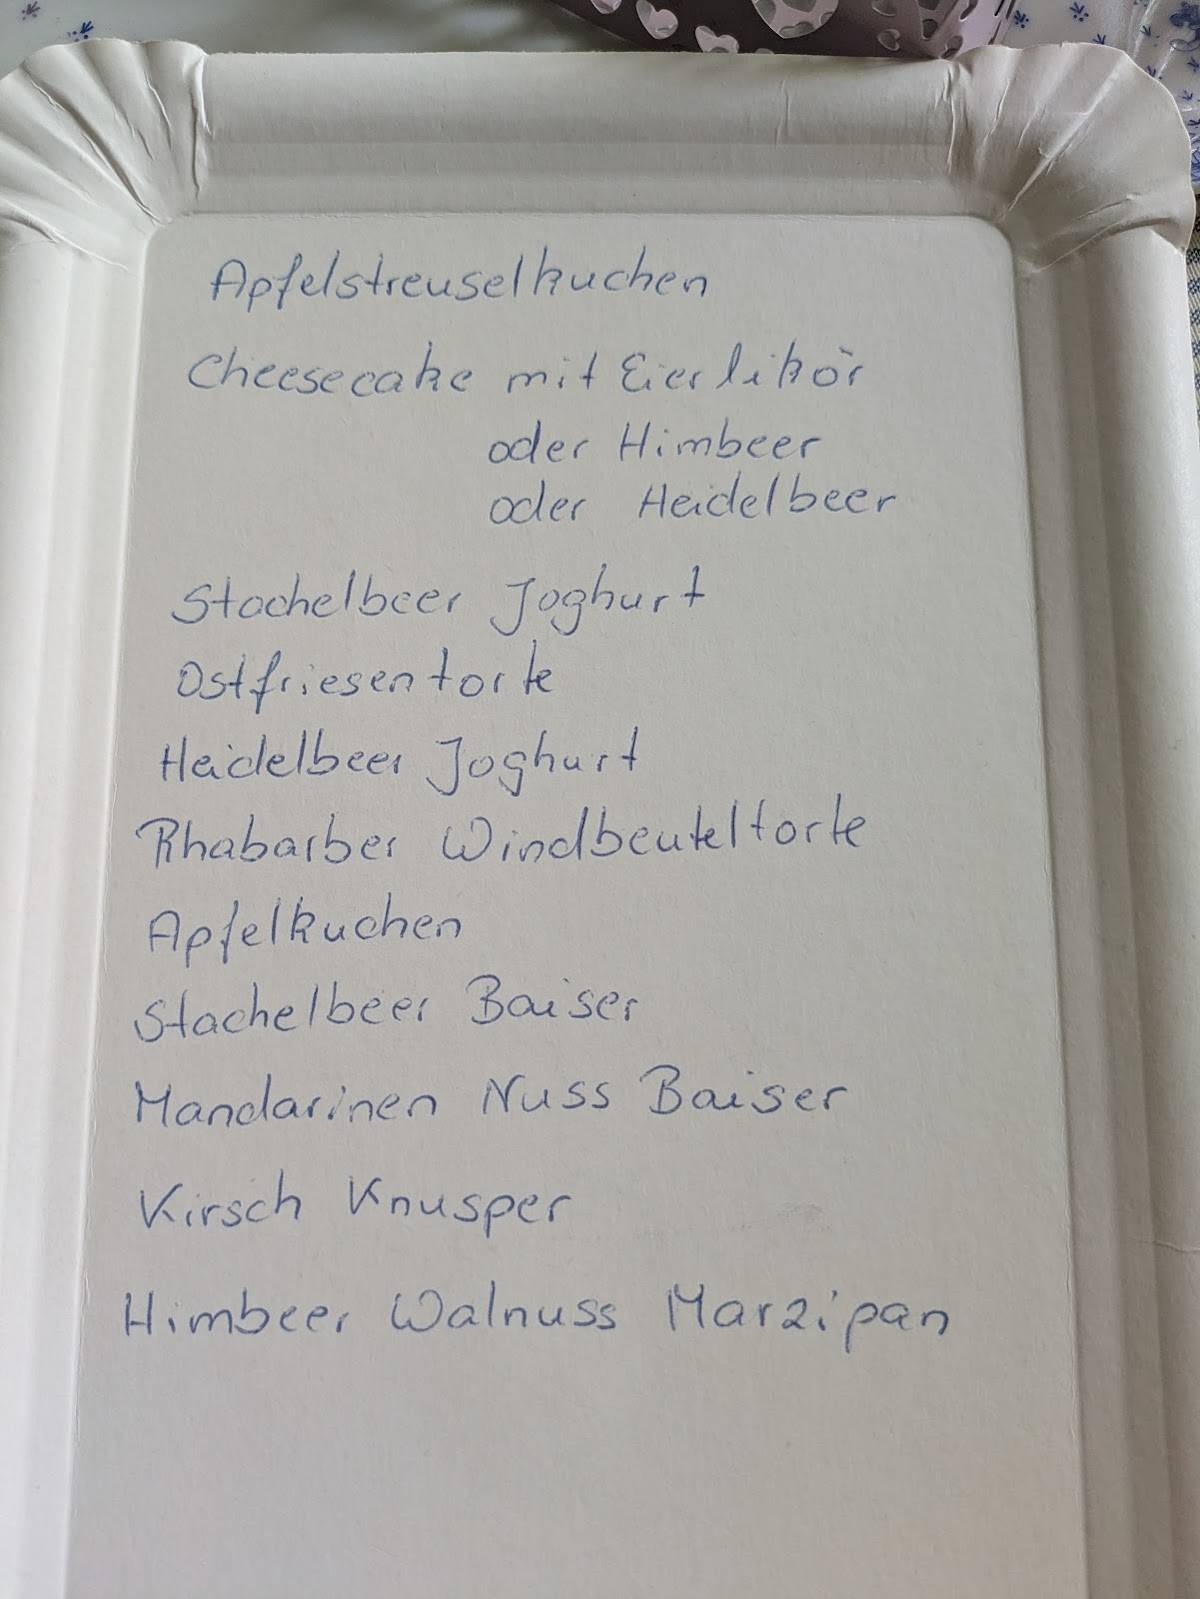 Apfelstreuselkuchen
Cheesecake mit Eierlikör
oder Himbeer
oder Heidelbeer
Stachelbeer Joghurt
Ostfriesentorte
Heidelbeer Joghurt
Rhabarber Windbeuteltorte
Apfelkuchen
Stachelbeer Baiser
Mandarinen Nuss Baiser
Kirsch Knusper
Himbeer Walnuss Marzipan